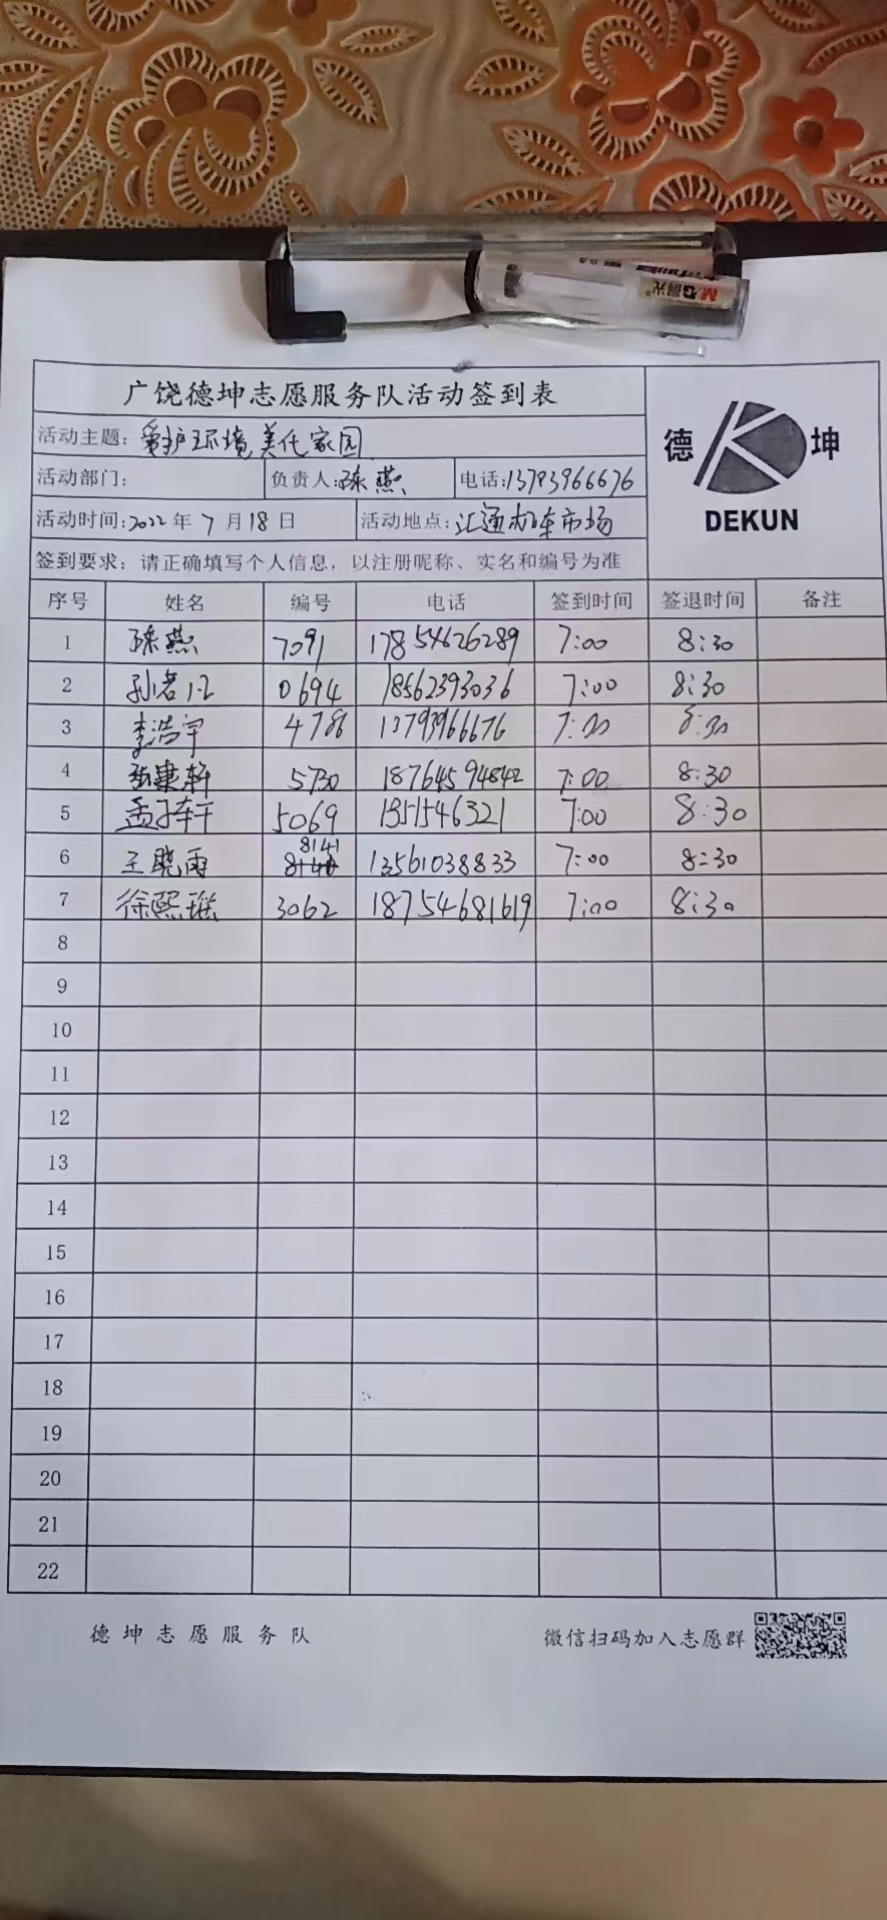 M&G晨光
广饶德坤志愿服务队活动签到表
德 坤
DEKUN
活动主题：爱护环境美化家园
活动部门： 负责人：陈燕 电话：13793966676
活动时间：2022年7月18日 活动地点：汇通机车市场
签到要求：请正确填写个人信息，以注册昵称、实名和编号为准
序号 姓名 编号 电话 签到时间 签退时间 备注
1 陈燕 7091 17854626289 7:00 8:30
2 0694 18562393036 7:00 8:30
3 李浩宇 4786 13793966676 7:00 8:30
4 建轩 5730 18764594842 7:00 8:30
5 孟子轩 5069 1351546321 7:00 8:30
6 王晓雨 8141 13561038833 7:00 8:30
7 徐熙 3062 18754681619 7:00 8:30
8
9
10
11
12
13
14
15
16
17
18
19
20
21
22
德坤志愿服务队 微信扫码加入志愿群